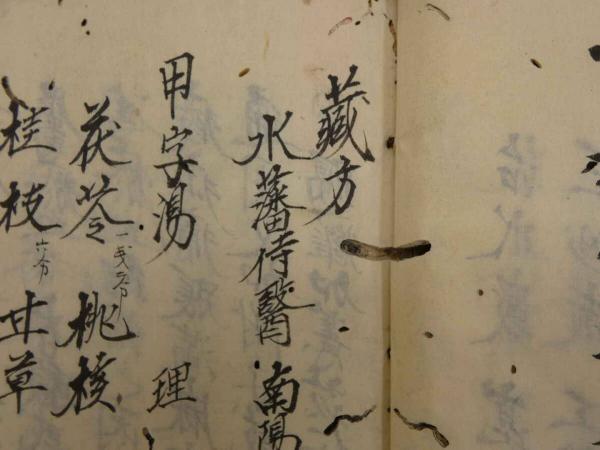 藏方
水藩侍醫 南陽
甲字湯 理
茯苓 一戋二分 桃核
桂枝 六分 甘草